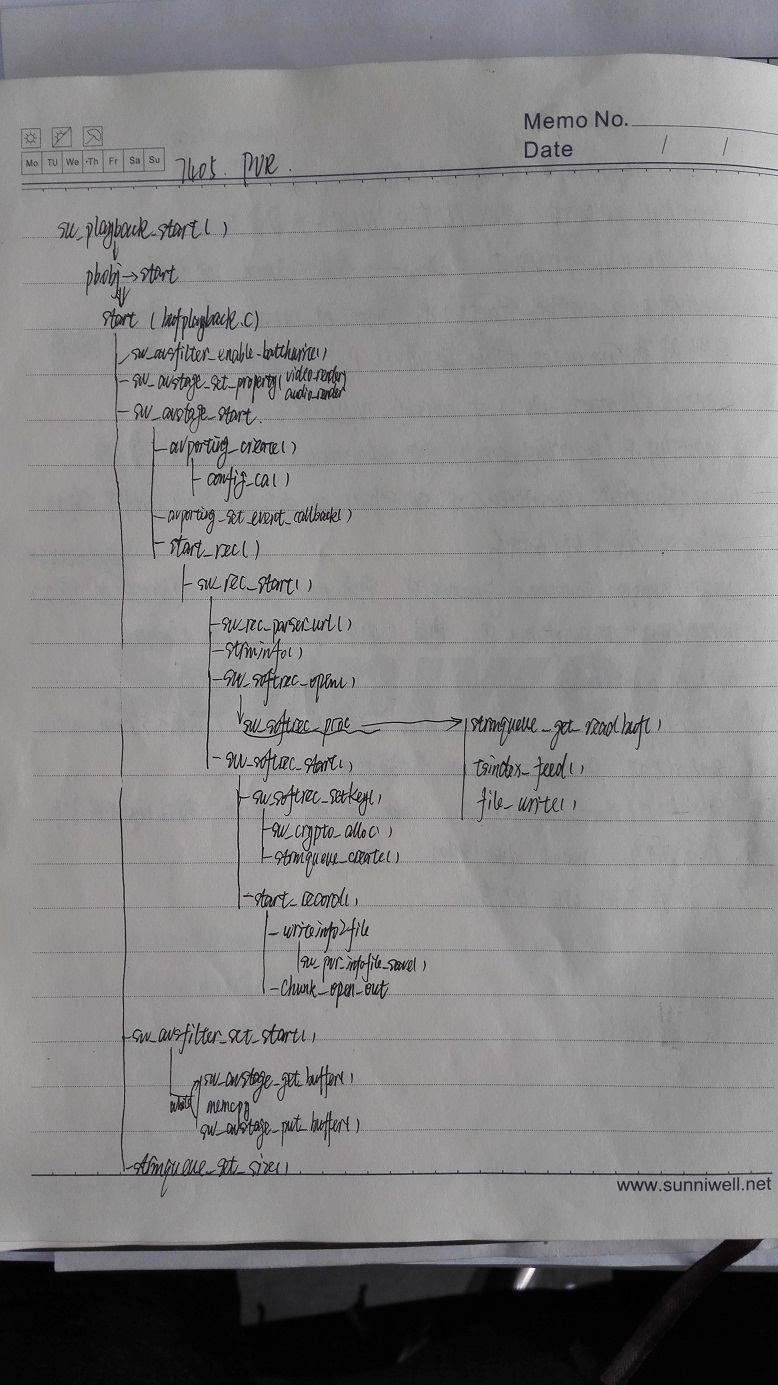 Memo No.
Date / /
Mo TU We Th Fr Sa Su
7405. PVR.
sw_playback_start()
pbobj→start
start (bufplayback.c)
sw_avsfilter_enable_batchwrite()
sw_avstage_set_property(video_render
audio_render
sw_avstage_start.
avporting_create()
config_ca()
avporting_set_event_callback()
start_rec()
sw_rec_start()
sw_rec_parser_url()
strminfo()
sw_softrec_open()
sw_softrec_proc
strmqueue_get_readbuf()
sw_softrec_start()
tsindex_feed()
sw_softrec_setkey()
file_write()
sw_crypto_alloc()
strmqueue_create()
start_record()
writeinfo2file
sw_pvr_infofile_save()
chunk_open_out
sw_avsfilter_set_start()
sw_avstage_get_buffer()
memcpy
sw_avstage_put_buffer()
strmqueue_set_size()
www.sunniwell.net